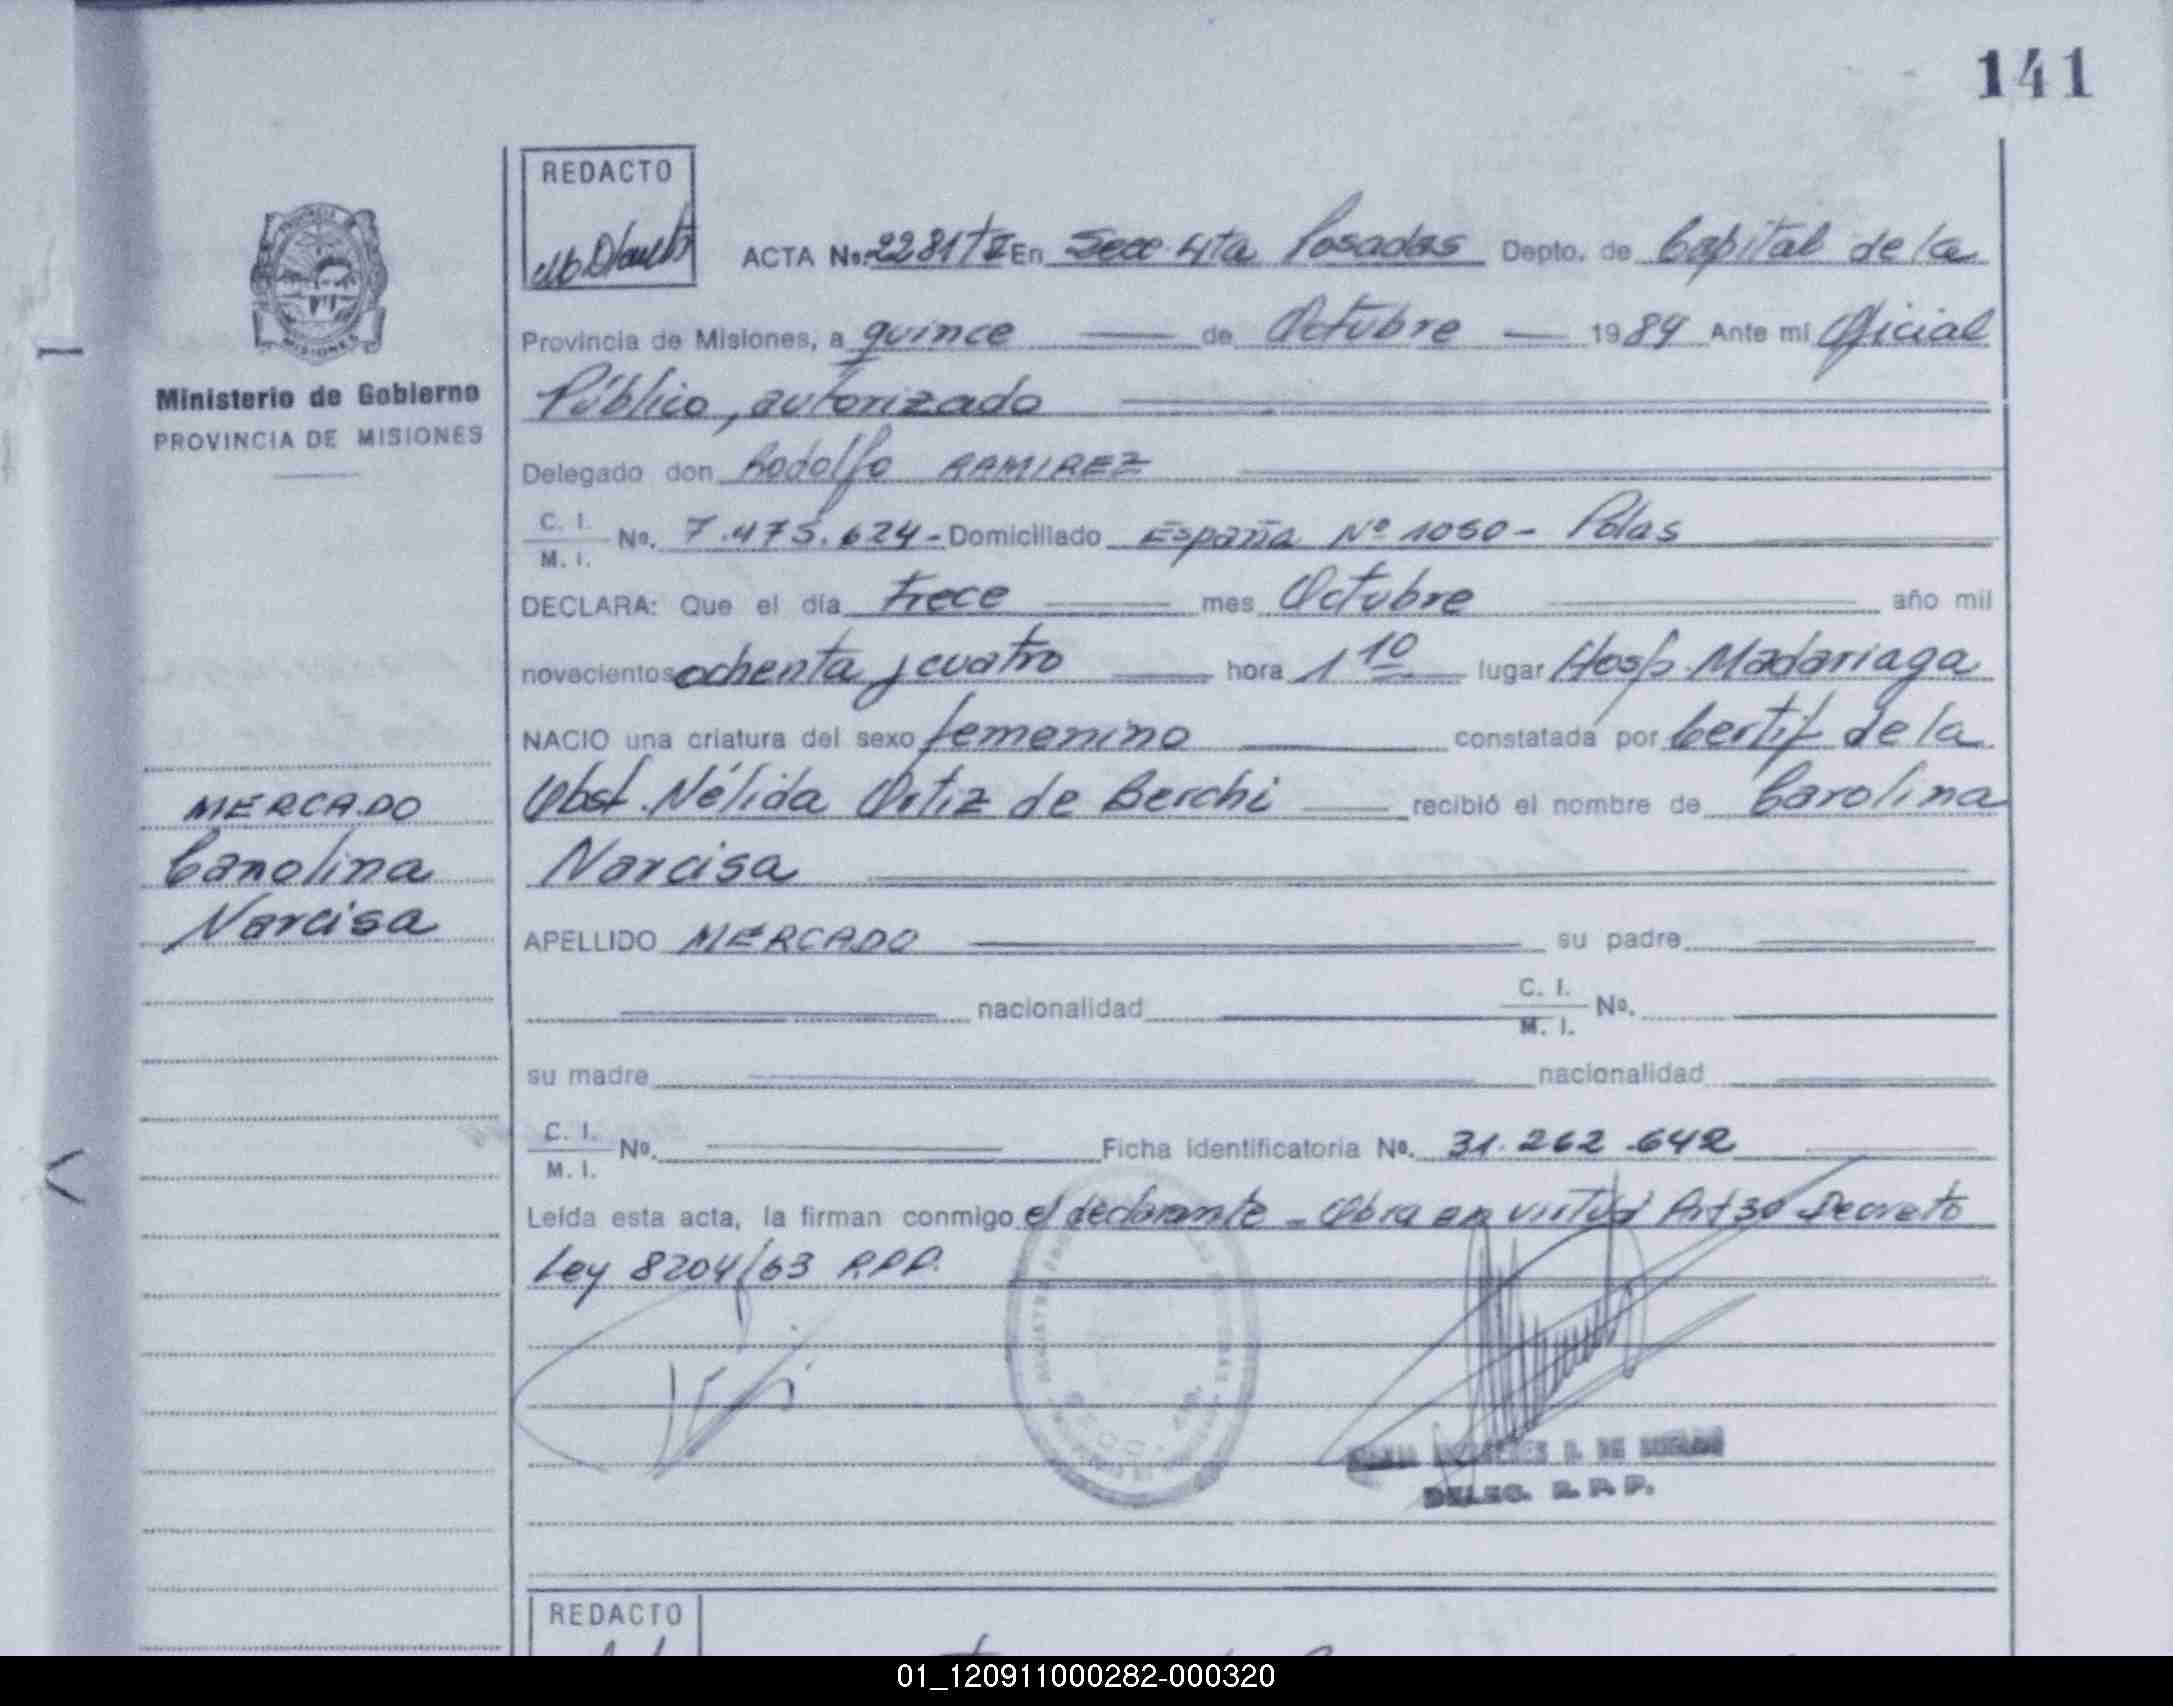 141
REDACTO
ACTA No. 2281 t V En Secc 4ta Posadas Depto. de Capital de la
Provincia de Misiones, a quince de Octubre 1984 Ante mi Oficial
Público, autorizado
Delegado don Rodolfo RAMIREZ
C. I. M. I. No. 7.475.624 - Domiciliado España Nº 1050 - Pdas
DECLARA: Que el día trece mes Octubre año mil
novecientos ochenta y cuatro hora 1 10 lugar Hosp. Madariaga
NACIO una criatura del sexo femenino constatada por Certif de la
Obst. Nélida Ortiz de Berchi recibió el nombre de Carolina
Narcisa
APELLIDO MERCADO su padre
nacionalidad C. I. M. I. No.
su madre nacionalidad
C. I. M. I. No. Ficha identificatoria No. 31.262.642
Leída esta acta, la firman conmigo el declarante - Obra en virtud Art 30 Decreto
Ley 8204/63 R.P.P.
DELEG. R. P. P.
REDACTO
MISIONES
Ministerio de Gobierno
PROVINCIA DE MISIONES
MERCADO
Carolina
Narcisa
01_120911000282-000320